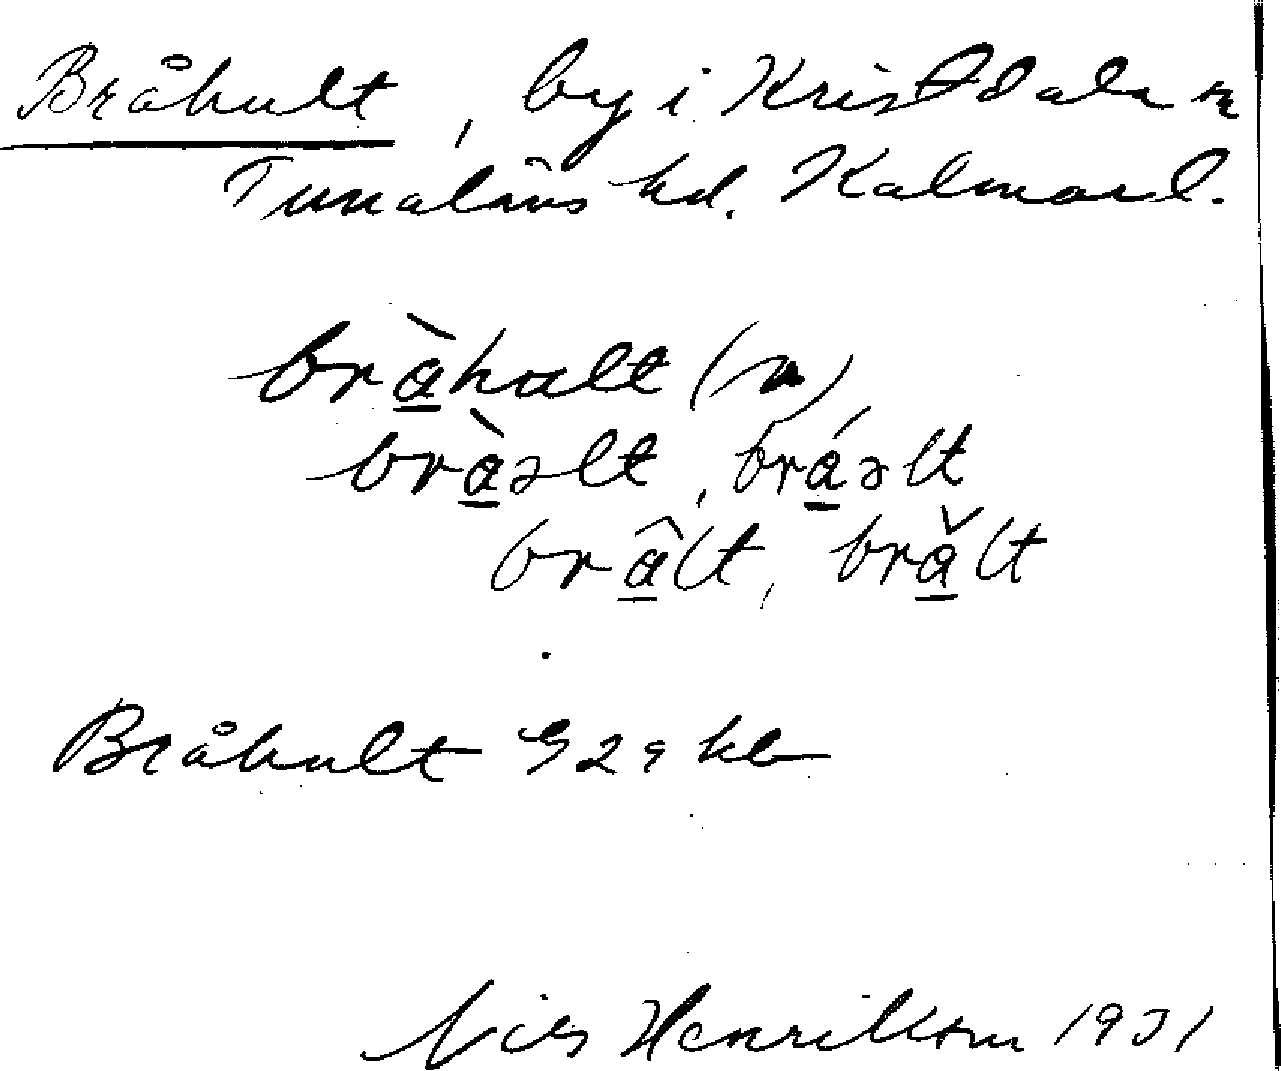 Bråhult, by i Kristdala sn
Tunaläns hd. Kalmar l.
brà̱hult (n)
brà̱əlt, brá̱əlt
brâ̱lt, brǎ̱lt
Bråhult Gea kb
Nils Henrikson 1931